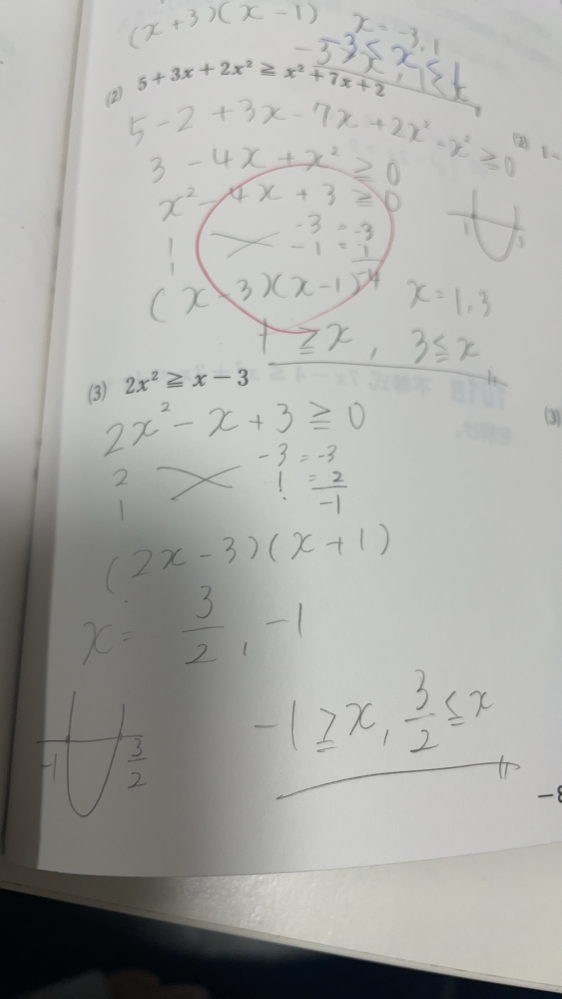 (x+3)(x-1) x=-3,1
(2) 5+3x+2x²≧x²+7x+2
5-2+3x-7x+2x²-x²≧0
3-4x+x²≧0
x²-4x+3≧0
1 -3=-3
1 -1=-1
-4
(x-3)(x-1) x=1,3
1 3
1≧x, 3≦x
(3) 2x²≧x-3
2x²-x+3≧0
2 -3=-3
1 1=2
-1
(2x-3)(x+1)
x=3/2,-1
-1≧x, 3/2≦x
-1 3/2
(2) 1-
(3)
-8